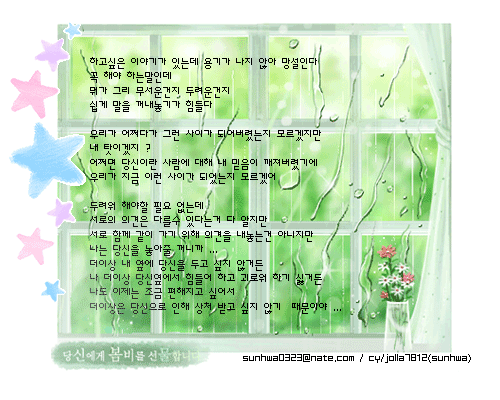 하고싶은 이야기가 있는데 용기가 나지 않아 망설인다
꼭 해야 하는말인데
뭐가 그리 무서운건지 두려운건지
쉽게 말을 꺼내놓기가 힘들다
우리가 어쩌다가 그런 사이가 되어버렸는지 모르겠지만
내 탓이겠지 ?
어쩌면 당신이란 사람에 대해 내 믿음이 깨져버렸기에
우리가 지금 이런 사이가 되었는지 모르겠어
두려워 해야할 필요 없는데
서로의 의견은 다를수 있다는거 다 알지만
서로 함께 같이 가기 위해 의견을 내놓는건 아니지만
나는 당신을 놓아줄 꺼니까 ...
더이상 내 옆에 당신을 두고 싶지 않거든
나 더이상 당신옆에서 힘들어 하고 괴로워 하기 싫거든
나도 이제는 조금 편해지고 싶어서
더이상은 당신으로 인해 상처 받고 싶지 않기 때문이야 ...
당신에게 봄비를 선물합니다
sunhwa0323@nate.com / cy/jolla7812(sunhwa)